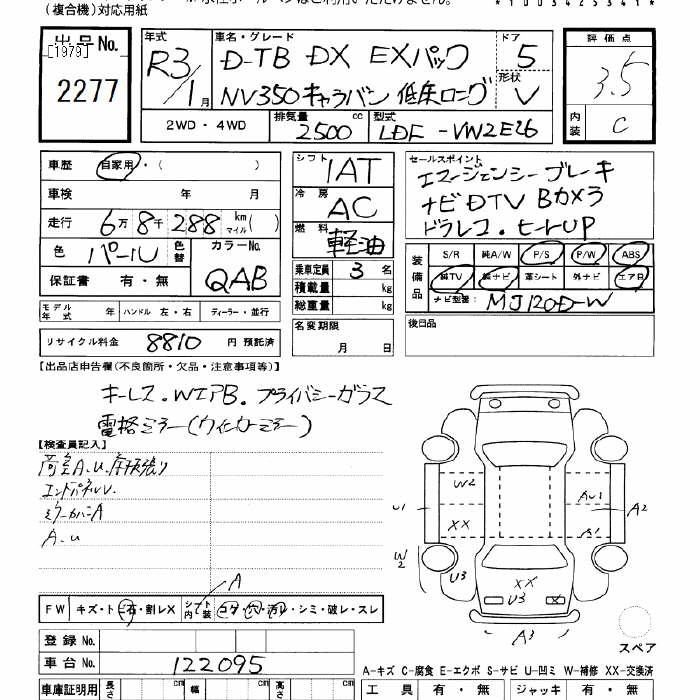 (複合機)対応用紙
*1003425341*
出品No.
[1979]
2277
年式
R3/1月
車名・グレード
D-TB DX EXパック
NV350キャラバン 低床ロング
ドア
5
形状
V
評価点
3.5
内装
C
2WD・4WD
排気量
2500cc
型式
LDF-VW2E26
車歴 自家用・( )
車検 年 月
走行 6万8千288 km マイル ( )
色 パール 色替 カラーNo. QAB
保証書 有・無
シフト 1AT
冷房 AC
燃料 軽油
乗車定員 3名
積載量 kg
総重量 kg
名変期限
月 日
セールスポイント
エマージェンシーブレーキ
ナビDTV Bカメラ
ドラレコ・ヒートUP
装備品
S/R 純A/W P/S P/W ABS
純TV 純ナビ 革シート 外ナビ エアB
ナビ型番: MJ120D-W
後日品
モデル年式 年 ハンドル 左・右 ディーラー・並行
リサイクル料金 8810 円預託済
【出品店申告欄(不良箇所・欠品・注意事項等)】
キーレス.WエアB.プライバシーガラス
電格ミラー(ウインカーミラー)
【検査員記入】
エンドパネルU.
ミラーカバーA
A.u
A
FW キズ・トビ石・割レX シフト内装 コゲ・穴・汚レ・シミ・破レ・スレ
登録No.
車台No. 122095
車庫証明用 長さ cm 幅 cm 高さ cm
W2
U1
XX
AU1
A2
A1
W2
U3
XX
U3
X
A3
スペア
A-キズ C-腐食 E-エクボ S-サビ U-凹ミ W-補修 XX-交換済
工具 有・無 ジャッキ 有・無